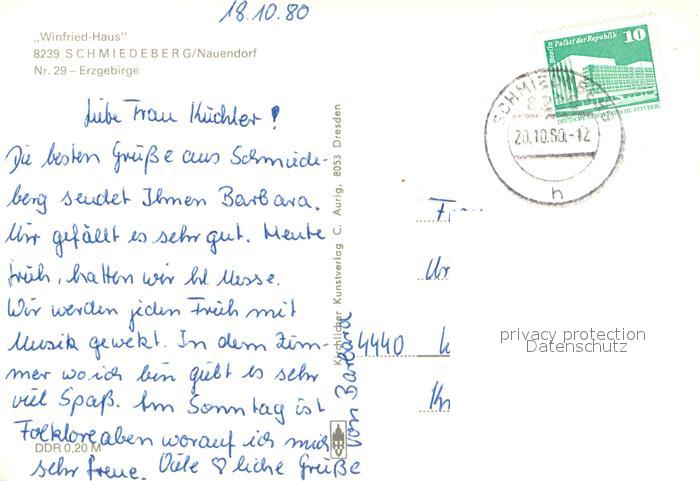 18.10.80
„Winfried-Haus"
8239 SCHMIEDEBERG/Nauendorf
Nr. 29 – Erzgebirge
Liebe Frau Küchler!
Die besten Grüße aus Schmiede-
berg sendet Ihnen Barbara.
Mir gefällt es sehr gut. Heute
früh, hatten wir hl. Messe.
Wir werden jeden Früh mit
Musik gewekt. In dem Zim-
mer wo ich bin gübt es sehr
viel Spaß. Am Sonntag ist
Folkloreaben worauf ich mich
sehr freue. Viele ♡liche Grüße
von Barbara
DDR 0,20 M
Kirchlicher Kunstverlag C. Aurig, 8053 Dresden
Berlin Palast der Republik 10
DEUTSCHE DEMOKRATISCHE REPUBLIK
SCHMIEDEBERG
20.10.80.-12
h
4440
privacy protection
Datenschutz